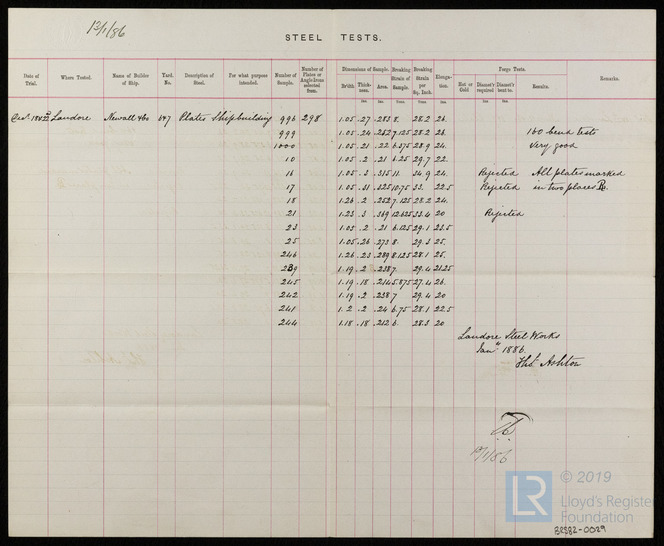 13/1/86
STEEL TESTS.
Date of Trial. Where Tested. Name of Builder of Ship. Yard. No. Description of Steel. For what purpose intended. Number of Sample. Number of Plates or Angle-Irons selected from. Dimensions of Sample. Br'dth. Thick-ness. Area. Breaking Strain of Sample. Breaking Strain per Sq. Inch. Elonga-tion. Forge Tests. Hot or Cold Diamet'r required Diamet'r bent to. Results. Remarks.
Ins. Ins. Ins. Tons Tons Ins. Ins.
Landore Newall &Co 647 Plates Shipbuilding 996 298 1.05 .27 .283 8. 28.2 26.
999 1.05 .24 .252 7.125 28.2 26. 160 bend tests
1000 1.05 .21 .22 6.375 28.9 24. Very good
10 1.05 .2 .21 6.25 29.7 22.
16 1.05 .3 .315 11. 34.9 24. Rejected All plates marked
17 1.05 .31 .325 10.75 33. 22.5 Rejected in two places R.
18 1.26 .2 .252 7.125 28.2 24.
21 1.23 .3 .369 12.625 33.4 20 Rejected
23 1.05 .2 .21 6.125 29.1 23.5
25 1.05 .26 .273 8. 29.3 25.
246 1.26 .23 .289 8.125 28.1 25.
239 1.19 .2 .238 7. 29.4 21.25
245 1.19 .18 .214 5.875 27.4 26.
242 1.19 .2 .238 7 29.4 20
241 1.2 .2 .24 6.75 28.1 22.5
244 1.18 .18 .212 6. 28.3 20
Landore Steel Works
Jany 1886.
Thos Ashton
13/1/86
LR © 2019
Lloyd's Register
Foundation
32582-0029